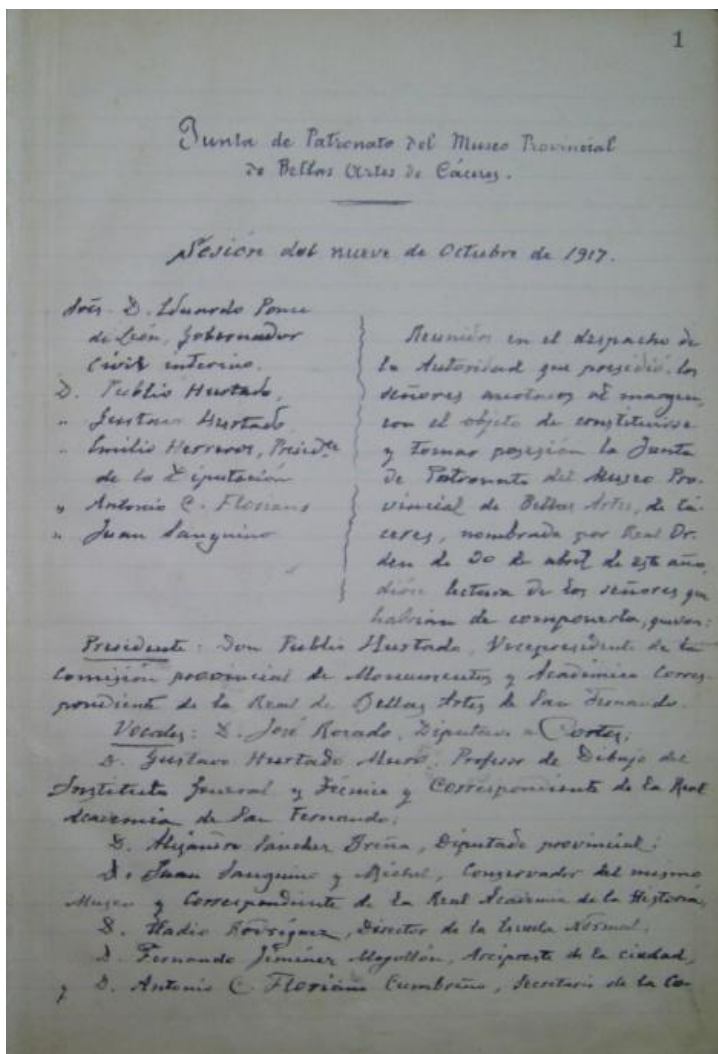 1
Junta de Patronato del Museo Provincial
de Bellas Artes de Cáceres.
Sesión del nueve de Octubre de 1917.
Sres. D. Eduardo Ponce
de León, Gobernador
Civil interino.
D. Publio Hurtado,
" Gustavo Hurtado,
" Emilio Herreros, Presid.te
de la Diputación
" Antonio C. Floriano
" Juan Sanguino
Reunidos en el despacho de
la Autoridad que presidió, los
señores anotados al margen,
con el objeto de constituirse
y tomar posesión la Junta
de Patronato del Museo Pro-
vincial de Bellas Artes, de Cá-
ceres, nombrada por Real Or-
den de 20 de abril de este año,
dióse lectura de los señores que
habían de componerla, que son:
Presidente: Don Publio Hurtado, Vicepresidente de la
Comisión provincial de Monumentos y Académico Corres-
pondiente de la Real de Bellas Artes de San Fernando.
Vocales: D. José Rosado, Diputado a Cortes;
D. Gustavo Hurtado Muro, Profesor de Dibujo del
Instituto General y Técnico y Correspondiente de la Real
Academia de San Fernando;
D. Alejandro Sánchez Breña, Diputado provincial;
D. Juan Sanguino y Michel, Conservador del mismo
Museo y Correspondiente de la Real Academia de la Historia,
D. Eladio Rodríguez, Director de la Escuela Normal,
D. Fernando Jiménez Mogollón, Arcipreste de la ciudad,
y D. Antonio C. Floriano Cumbreño, Secretario de la Co-